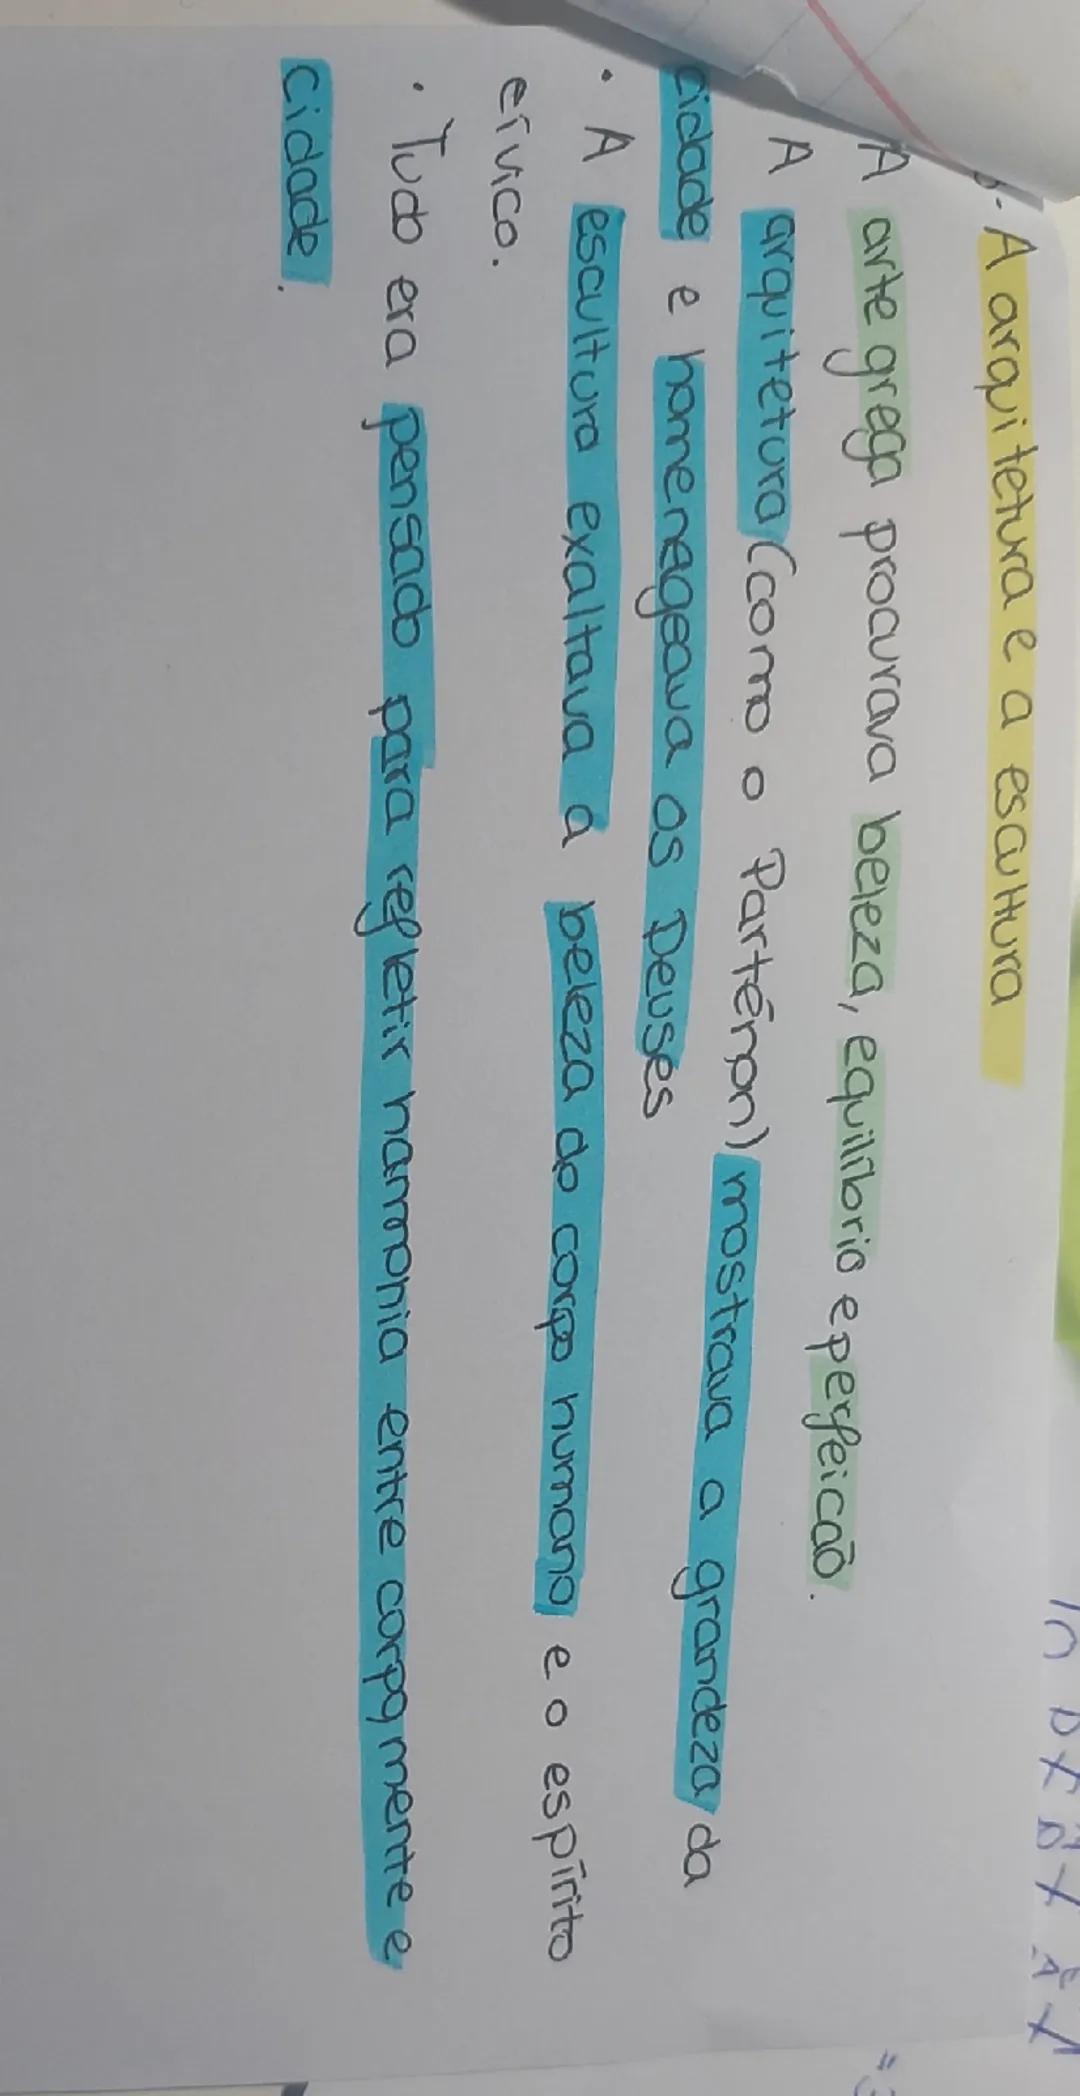 A arquitetura e a escultura
A arte grega procurava beleza, equilíbrio e perfeicão.
A arquitetura (como o Parténon) mostrava a grandeza da
cidade e homenageava os Deuses
• A escultura exaltava a beleza do corpo humano e o espírito
cívico.
• Tudo era pensado para refletir harmonia entre corpo, mente e
cidade.